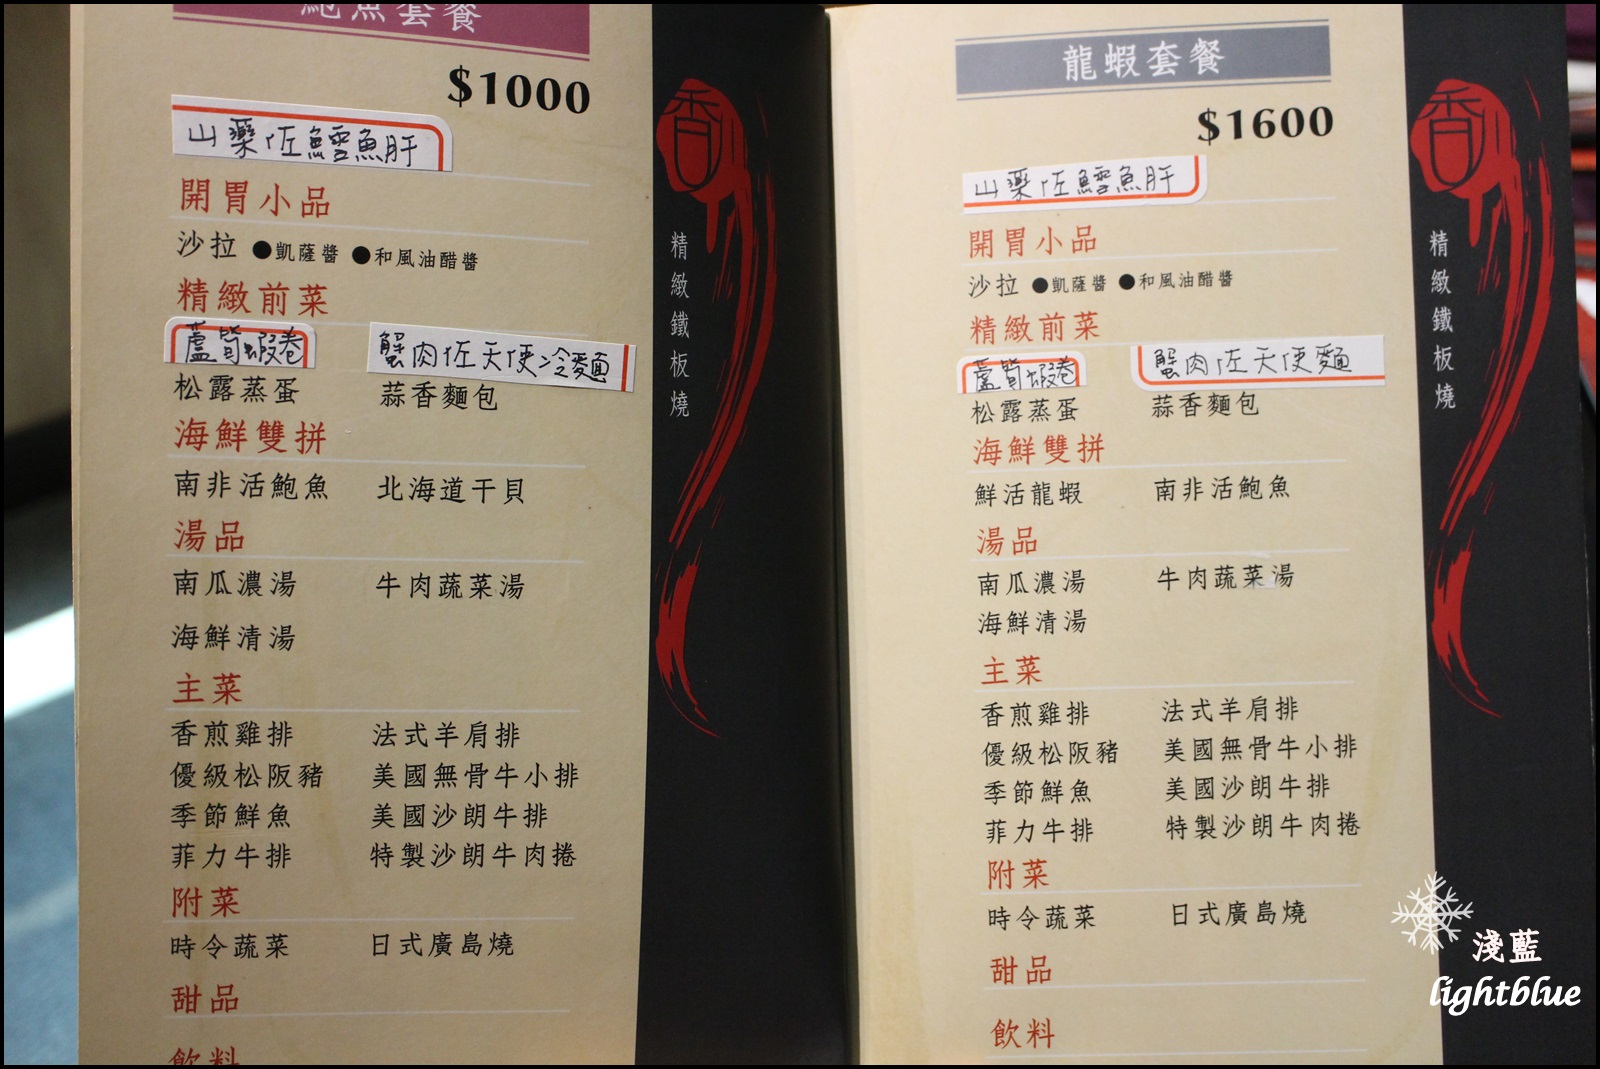 鮑魚套餐
$1000
山藥佐鱈魚肝
開胃小品
沙拉 ●凱薩醬 ●和風油醋醬
精緻前菜
蘆筍蝦卷 蟹肉佐天使冷麵
松露蒸蛋 蒜香麵包
海鮮雙拼
南非活鮑魚 北海道干貝
湯品
南瓜濃湯 牛肉蔬菜湯
海鮮清湯
主菜
香煎雞排 法式羊肩排
優級松阪豬 美國無骨牛小排
季節鮮魚 美國沙朗牛排
菲力牛排 特製沙朗牛肉捲
附菜
時令蔬菜 日式廣島燒
甜品
飲料
香
精緻鐵板燒
龍蝦套餐
$1600
山藥佐鱈魚肝
開胃小品
沙拉 ●凱薩醬 ●和風油醋醬
精緻前菜
蘆筍蝦卷 蟹肉佐天使麵
松露蒸蛋 蒜香麵包
海鮮雙拼
鮮活龍蝦 南非活鮑魚
湯品
南瓜濃湯 牛肉蔬菜湯
海鮮清湯
主菜
香煎雞排 法式羊肩排
優級松阪豬 美國無骨牛小排
季節鮮魚 美國沙朗牛排
菲力牛排 特製沙朗牛肉捲
附菜
時令蔬菜 日式廣島燒
甜品
飲料
香
精緻鐵板燒
淺藍
lightblue